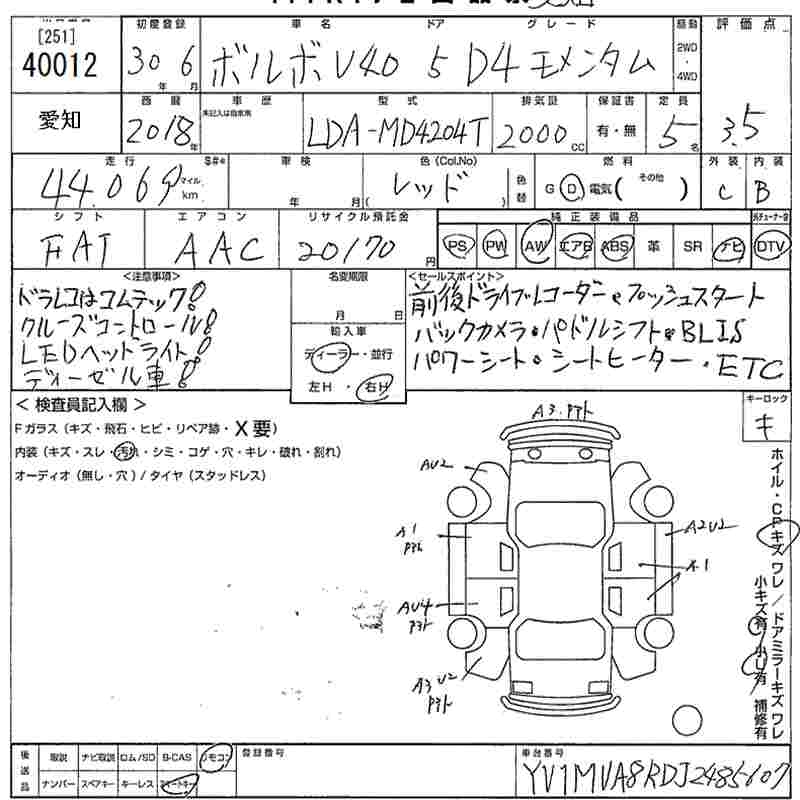 初度登録 車名 ドア グレード 駆動 評価点
[251]
40012 30 6 ボルボV40 5 D4 モメンタム 2WD・4WD
年 月
西暦 車歴 型式 排気量 保証書 定員
未記入は自家用
愛知 2018年 LDA-MD4204T 2000cc 有・無 5名 3.5
走行 S#* 車検 色(Col.No) 燃料 外装 内装
44.069 マイル km 年 月 レッド ( ) 色替 G D 電気( その他 ) C B
シフト エアコン リサイクル預託金 純正装備品
FAT AAC 20170円 PS PW AW エアB ABS 革 SR ナビ DTV
<注意事項> 名変期限 <セールスポイント>
ドラレコはコムテック! 月 日 前後ドライブレコーダー・プッシュスタート
クルーズコントロール! 輸入車 バックカメラ・パドルシフト・BLIS
LEDヘッドライト! ディーラー・並行 パワーシート・シートヒーター・ETC
ディーゼル車! 左H・右H
<検査員記入欄> キーロック
キ
Fガラス(キズ・飛石・ヒビ・リペア跡・X要)
内装(キズ・スレ・汚れ・シミ・コゲ・穴・キレ・破れ・割れ)
オーディオ(無し・穴)/タイヤ(スタッドレス)
A3.アト
AU2
A1 アト
A2U2
A1
AU4 アト
A3U2 アト
ホイル・CPキズ ワレ/ドアミラーキズ ワレ
小キズ有/小U有 補修有
後送品 取説 ナビ取説 ロム/SD B-CAS リモコン 登録番号 車台番号
ナンバー スペアキー キーレス スマートキー YV1MVA8RDJ2485607